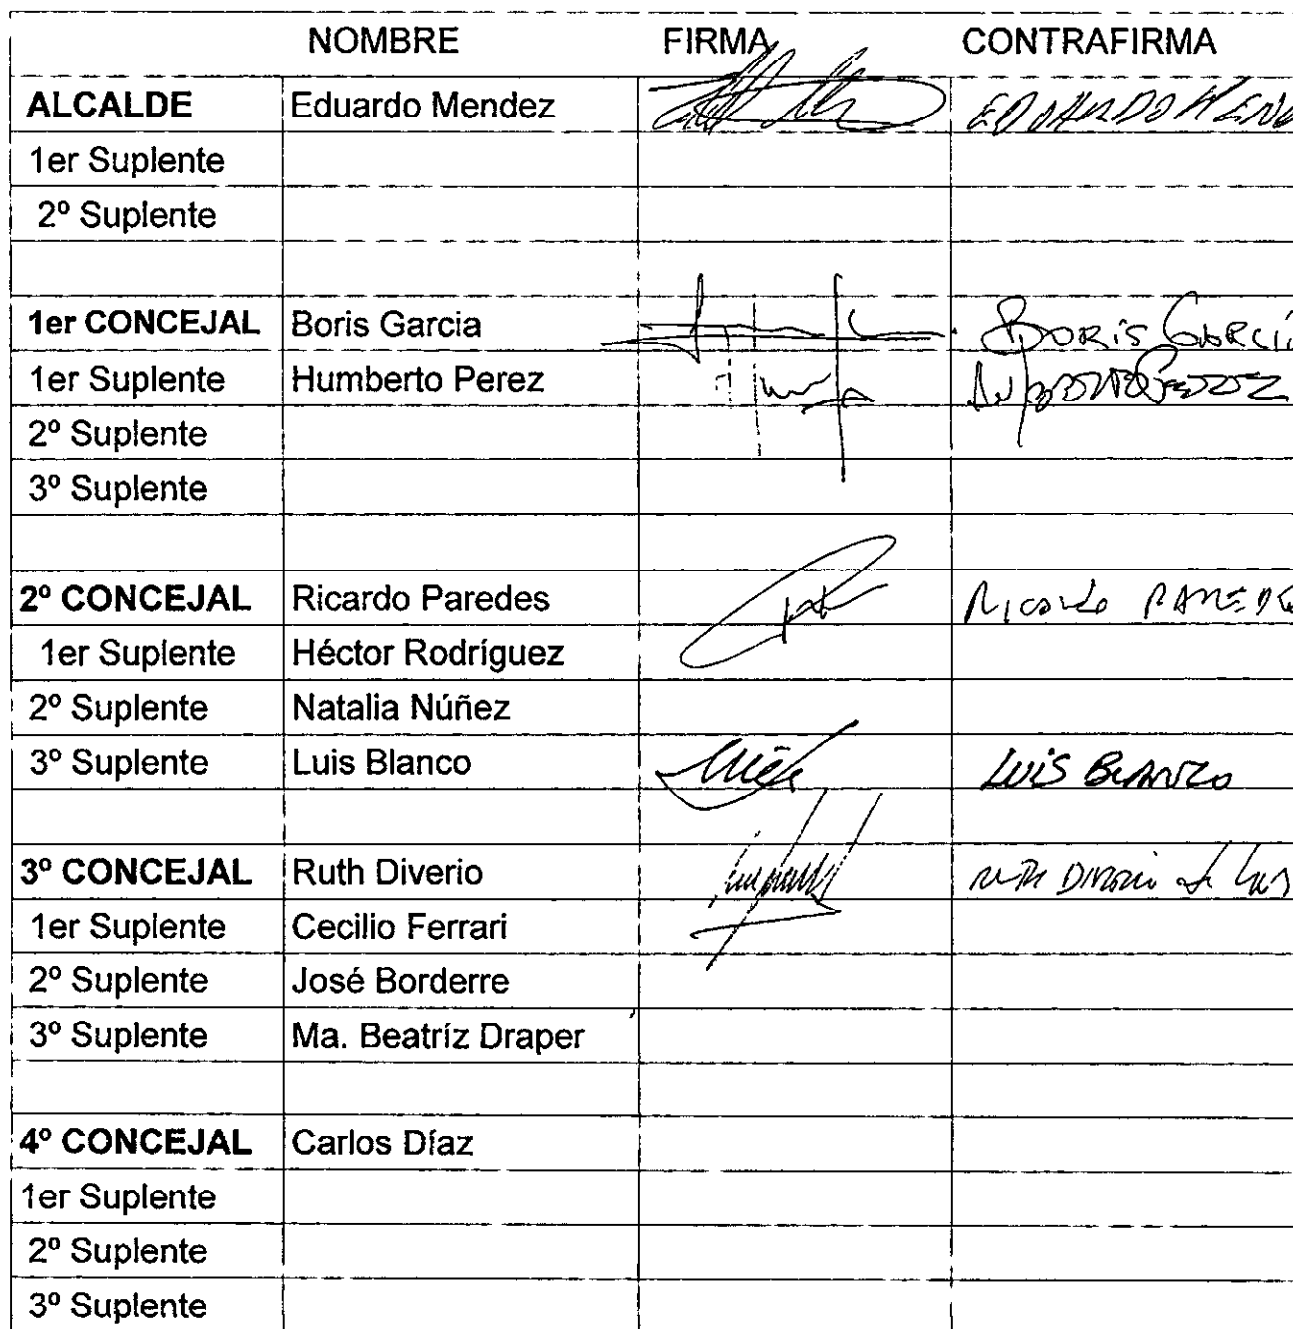 NOMBRE FIRMA CONTRAFIRMA
ALCALDE Eduardo Mendez EDUARDO MEND
1er Suplente
2º Suplente
1er CONCEJAL Boris Garcia BORIS GARCÍ
1er Suplente Humberto Perez
2º Suplente
3º Suplente
2º CONCEJAL Ricardo Paredes Ricardo PAREDE
1er Suplente Héctor Rodríguez
2º Suplente Natalia Núñez
3º Suplente Luis Blanco LUIS BLANCO
3º CONCEJAL Ruth Diverio RUTH DIVERIO
1er Suplente Cecilio Ferrari
2º Suplente José Borderre
3º Suplente Ma. Beatríz Draper
4º CONCEJAL Carlos Díaz
1er Suplente
2º Suplente
3º Suplente